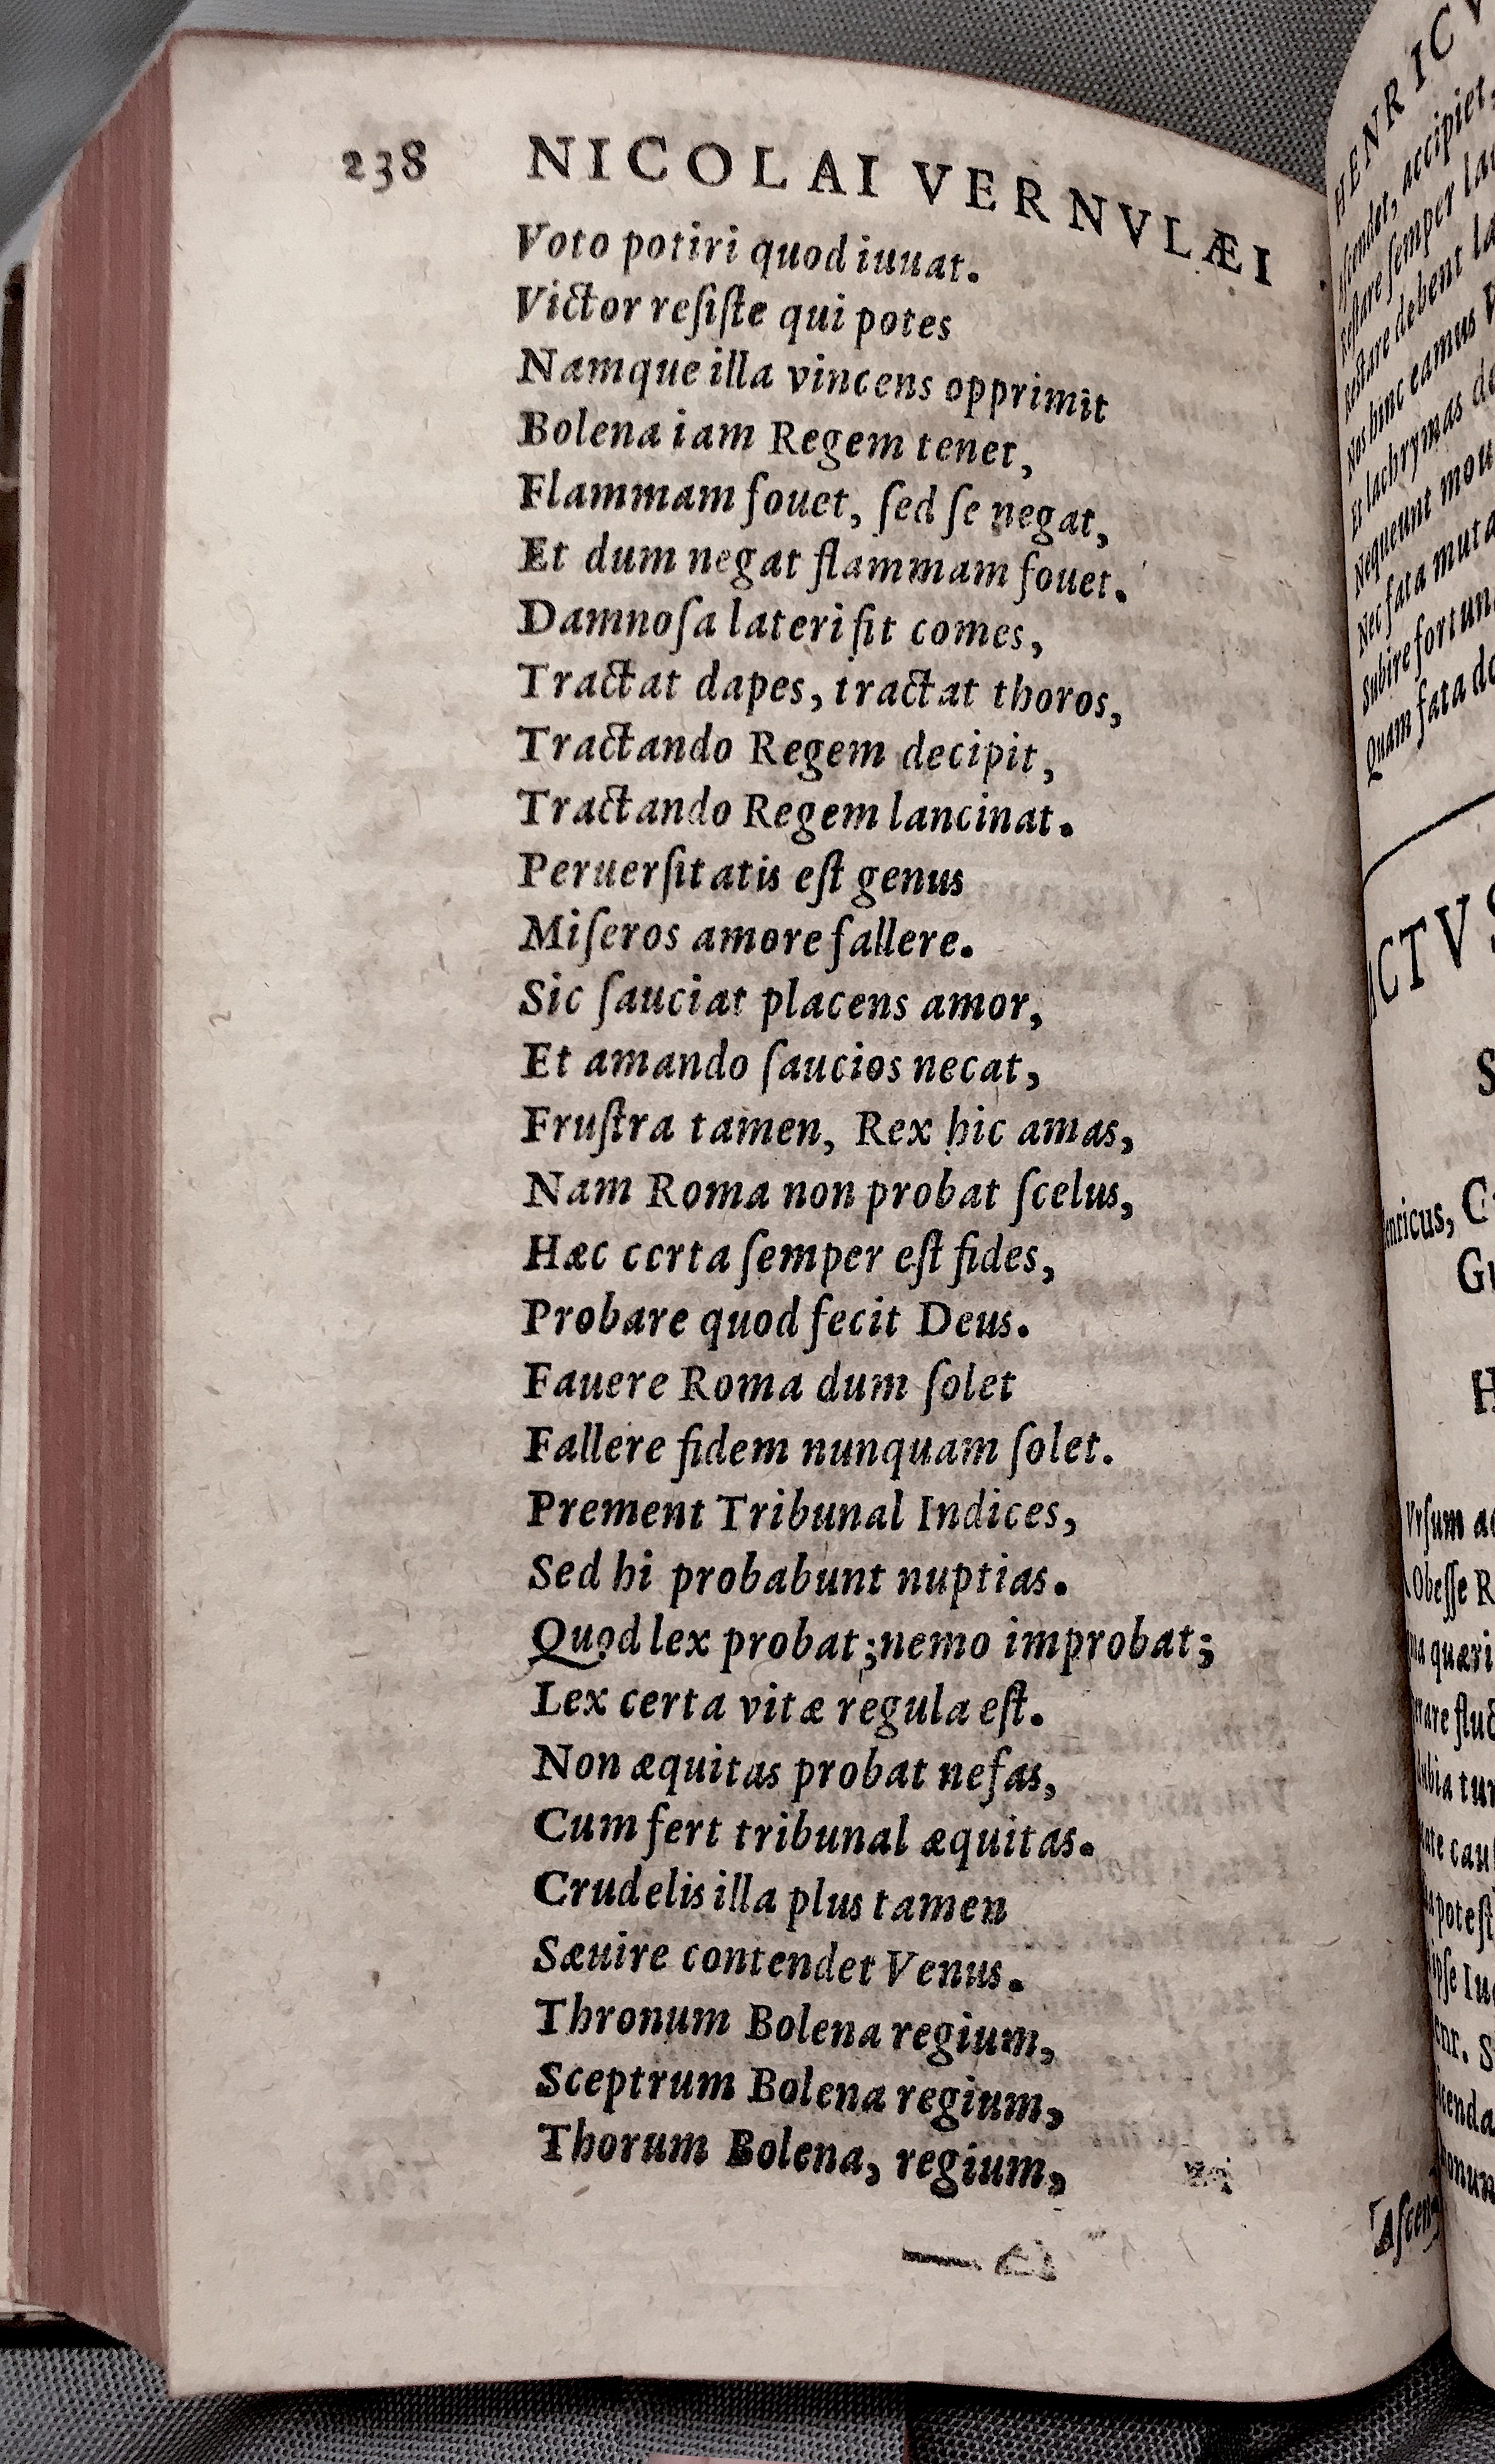 238 NICOLAI VERNVLÆI
Voto potiri quod iuuat.
Victor reſiſte qui potes
Namque illa vincens opprimit
Bolena iam Regem tenet,
Flammam fouet, ſed ſe negat,
Et dum negat flammam fouet.
Damnoſa lateri ſit comes,
Tractat dapes, tractat thoros,
Tractando Regem decipit,
Tractando Regem lancinat.
Peruerſitatis eſt genus
Miſeros amore fallere.
Sic ſauciat placens amor,
Et amando ſaucios necat,
Fruſtra tamen, Rex hic amas,
Nam Roma non probat ſcelus,
Hæc ccrta ſemper eſt fides,
Probare quod fecit Deus.
Fauere Roma dum ſolet
Fallere fidem nunquam ſolet.
Prement Tribunal Indices,
Sed hi probabunt nuptias.
Quod lex probat; nemo improbat;
Lex certa vitæ regula eſt.
Non æquitas probat nefas,
Cum fert tribunal æquitas.
Crudelis illa plus tamen
Sæuire contendet Venus.
Thronum Bolena regium,
Sceptrum Bolena regium,
Thorum Bolena, regium,
HENRICV
accipiet,
ſemper
Reſtare debent
Nos hinc eamus
Et lachrymas
Nequeunt
Nec fata muta
Subire fortun
Quam fata
ACTVS
Vrſum
Obeſſe R
quæri
Aſcen